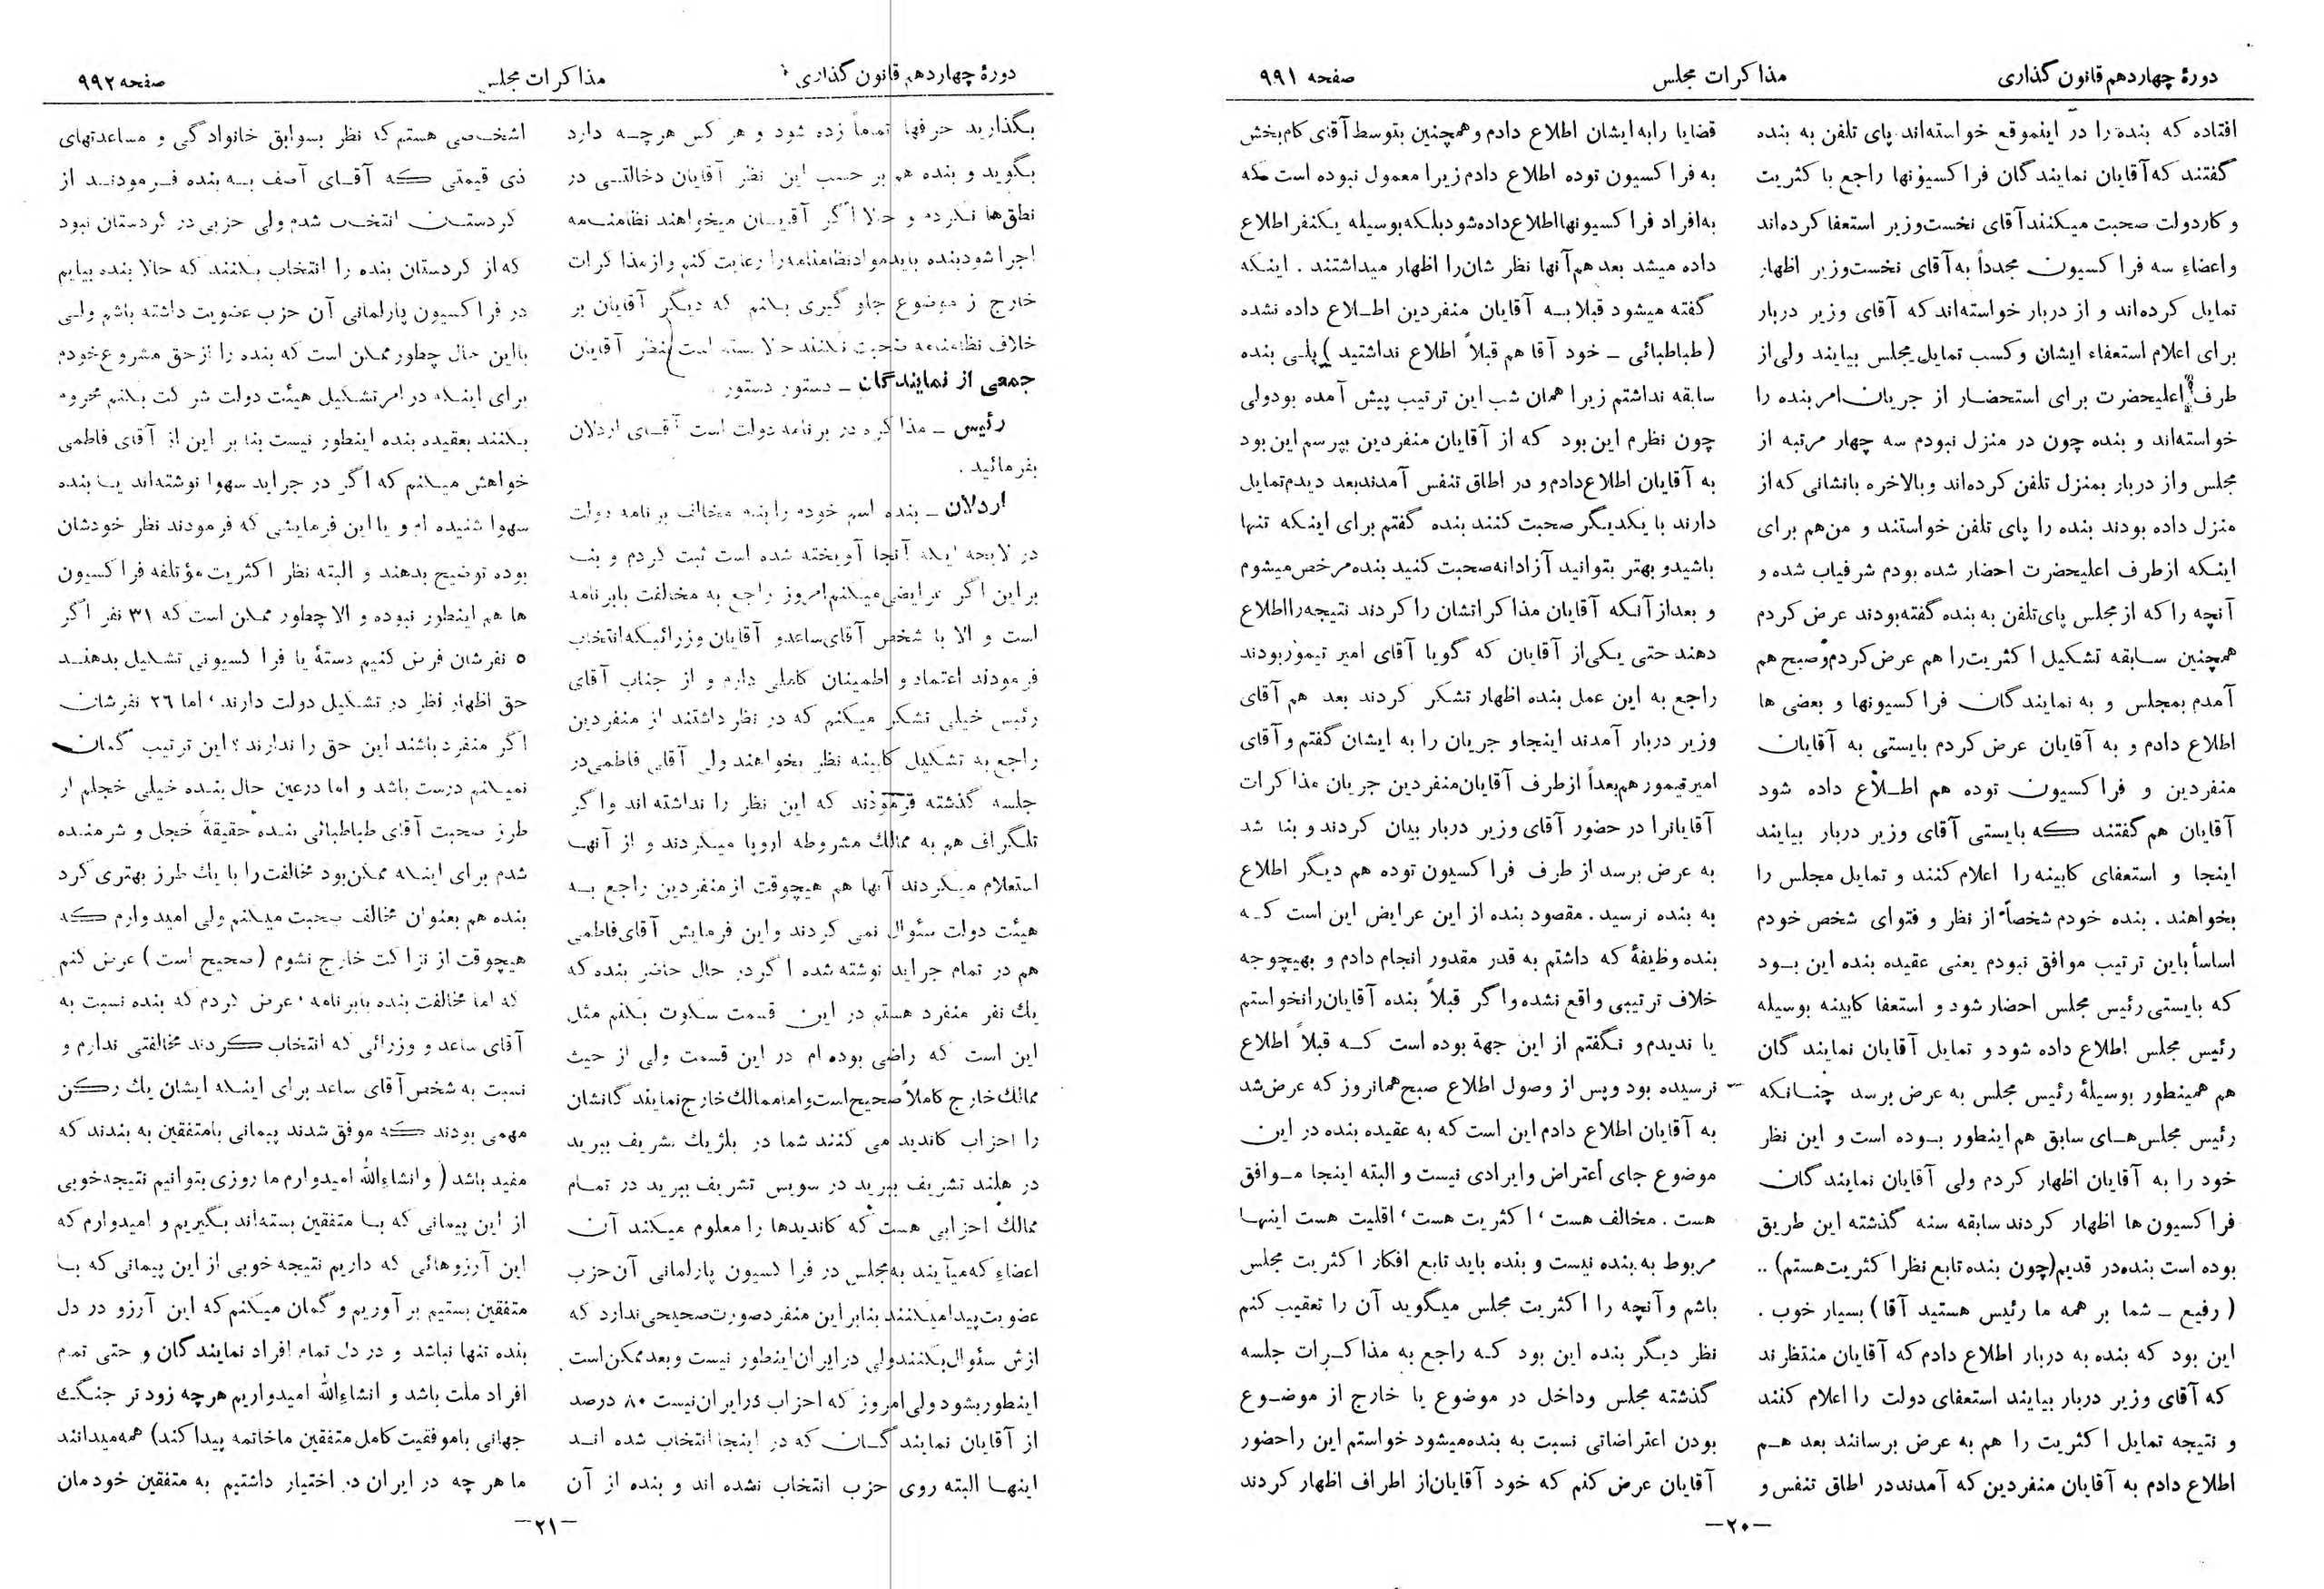 دورهٔ چهاردهم قانون گذاری
مذاکرات مجلس
صفحه ۹۹۱
افتاده که بنده را در اینموقع خواسته‌اند پای تلفن به بنده
گفتند که آقایان نمایندگان فراکسیونها راجع باکثریت
و کار دولت صحبت میکنند آقای نخست‌وزیر استعفا کرده‌اند
و اعضاء سه فراکسیون مجدداً به آقای نخست‌وزیر اظهار
تمایل کرده‌اند و از دربار خواسته‌اند که آقای وزیر دربار
برای اعلام استعفاء ایشان و کسب تمایل مجلس بیایند ولی از
طرف اعلیحضرت برای استحضار از جریان امر بنده را
خواسته‌اند و بنده چون در منزل نبودم سه چهار مرتبه از
مجلس و از دربار بمنزل تلفن کرده‌اند و بالاخره بانشانی که از
منزل داده بودند بنده را پای تلفن خواستند و من هم برای
اینکه از طرف اعلیحضرت احضار شده بودم شرفیاب شده و
آنچه را که از مجلس پای تلفن به بنده گفته بودند عرض کردم
همچنین سابقه تشکیل اکثریت را هم عرض کردم و صبح هم
آمدم بمجلس و به نمایندگان فراکسیونها و بعضی ها
اطلاع دادم و به آقایان عرض کردم بایستی به آقایان
منفردین و فراکسیون توده هم اطلاع داده شود
آقایان هم گفتند که بایستی آقای وزیر دربار بیایند
اینجا و استعفای کابینه را اعلام کنند و تمایل مجلس را
بخواهند . بنده خودم شخصاً از نظر و فتوای شخص خودم
اساساً باین ترتیب موافق نبودم یعنی عقیده بنده این بود
که بایستی رئیس مجلس احضار شود و استعفا کابینه بوسیله
رئیس مجلس اطلاع داده شود و تمایل آقایان نمایندگان
هم همینطور بوسیلهٔ رئیس مجلس به عرض برسد چنانکه
رئیس مجلس‌های سابق هم اینطور بوده است و این نظر
خود را به آقایان اظهار کردم ولی آقایان نمایندگان
فراکسیون ها اظهار کردند سابقه سنه گذشته این طریق
بوده است بنده در قدیم (چون بنده تابع نظر اکثریت هستم) ..
( رفیع ـ شما بر همه ما رئیس هستید آقا ) بسیار خوب .
این بود که بنده به دربار اطلاع دادم که آقایان منتظرند
که آقای وزیر دربار بیایند استعفای دولت را اعلام کنند
و نتیجه تمایل اکثریت را هم به عرض برسانند بعد هم
اطلاع دادم به آقایان منفردین که آمدند در اطاق تنفس و
قضایا را به ایشان اطلاع دادم و همچنین بتوسط آقای کام‌بخش
به فراکسیون توده اطلاع دادم زیرا معمول نبوده است که
به افراد فراکسیونها اطلاع داده شود بلکه بوسیله یکنفر اطلاع
داده میشد بعد هم آنها نظر شان را اظهار میداشتند . اینکه
گفته میشود قبلا به آقایان منفردین اطلاع داده نشده
( طباطبائی ـ خود آقا هم قبلاً اطلاع نداشتید ) بلی بنده
سابقه نداشتم زیرا همان شب این ترتیب پیش آمده بود ولی
چون نظرم این بود که از آقایان منفردین بپرسم این بود
به آقایان اطلاع دادم و در اطاق تنفس آمدند بعد دیدم تمایل
دارند با یکدیگر صحبت کنند بنده گفتم برای اینکه تنها
باشید و بهتر بتوانید آزادانه صحبت کنید بنده مرخص میشوم
و بعد از آنکه آقایان مذاکراتشان را کردند نتیجه را اطلاع
دهند حتی یکی از آقایان که گویا آقای امیر تیمور بودند
راجع به این عمل بنده اظهار تشکر کردند بعد هم آقای
وزیر دربار آمدند اینجا و جریان را به ایشان گفتم و آقای
امیر تیمور هم بعداً از طرف آقایان منفردین جریان مذاکرات
آقایانرا در حضور آقای وزیر دربار بیان کردند و بنا شد
به عرض برسد از طرف فراکسیون توده هم دیگر اطلاع
به بنده نرسید . مقصود بنده از این عرایض این است که
بنده وظیفهٔ که داشتم به قدر مقدور انجام دادم و بهیچوجه
خلاف ترتیبی واقع نشده و اگر قبلاً بنده آقایان را نخواستم
یا ندیدم و نگفتم از این جهة بوده است که قبلاً اطلاع
نرسیده بود و پس از وصول اطلاع صبح همانروز که عرض شد
به آقایان اطلاع دادم این است که به عقیده بنده در این
موضوع جای اعتراض و ایرادی نیست و البته اینجا موافق
هست . مخالف هست ، اکثریت هست ، اقلیت هست اینها
مربوط به بنده نیست و بنده باید تابع افکار اکثریت مجلس
باشم و آنچه را اکثریت مجلس میگوید آن را تعقیب کنم
نظر دیگر بنده این بود که راجع به مذاکرات جلسه
گذشته مجلس و داخل در موضوع یا خارج از موضوع
بودن اعتراضاتی نسبت به بنده میشود خواستم این را حضور
آقایان عرض کنم که خود آقایان از اطراف اظهار کردند
—۲۰—
دورهٔ چهاردهم قانون گذاری
مذاکرات مجلس
صفحه ۹۹۲
بگذارید حرفها تماماً زده شود و هر کس هر چه دارد
بگوید و بنده هم بر حسب این نظر آقایان دخالتی در
نطق‌ها نکردم و حالا اگر آقایان میخواهند نظامنامه
اجرا شود بنده باید مواد نظامنامه را رعایت کنم و از مذاکرات
خارج از موضوع جلوگیری بکنم که دیگر آقایان بر
خلاف نظامنامه صحبت نکنند حالا بسته است بنظر آقایان
جمعی از نمایندگان ـ دستور دستور .
رئیس ـ مذاکره در برنامه دولت است آقای اردلان
بفرمائید .
اردلان ـ بنده اسم خودم را بنام مخالف برنامه دولت
در لایحه ایکه آنجا آویخته شده است ثبت کردم و بنا
بر این اگر عرایضی میکنم امروز راجع به مخالفت بابرنامه
است و الا با شخص آقای ساعد و آقایان وزرائیکه انتخاب
فرمودند اعتماد و اطمینان کاملی دارم و از جناب آقای
رئیس خیلی تشکر میکنم که در نظر داشتند از منفردین
راجع به تشکیل کابینه نظر بخواهند ولی آقای فاطمی در
جلسه گذشته فرمودند که این نظر را نداشته اند و اگر
تلگراف هم به ممالك مشروطه اروپا میکردند و از آنها
استعلام میکردند آنها هم هیچوقت از منفردین راجع به
هیئت دولت سئوال نمی کردند و این فرمایش آقای فاطمی
هم در تمام جراید نوشته شده اگر در حال حاضر بنده که
یك نفر منفرد هستم در این قسمت سکوت بکنم مثل
این است که راضی بوده ام در این قسمت ولی از حیث
ممالك خارج کاملاً صحیح است و اما ممالك خارج نمایندگانشان
را احزاب کاندید می کنند شما در بلژیك تشریف ببرید
در هلند تشریف ببرید در سویس تشریف ببرید در تمام
ممالك احزابی هست که کاندیدها را معلوم میکند آن
اعضاء که میآیند به مجلس در فراکسیون پارلمانی آن حزب
عضویت پیدا میکنند بنابراین منفرد صورت صحیحی ندارد که
ازش سئوال بکنند ولی در ایران اینطور نیست و بعد ممکن است
اینطور بشود ولی امروز که احزاب در ایران نیست ۸۰ درصد
از آقایان نمایندگان که در اینجا انتخاب شده اند
اینها البته روی حزب انتخاب نشده اند و بنده از آن
اشخاصی هستم که نظر بسوابق خانوادگی و مساعدتهای
ذی قیمتی که آقای آصف به بنده فرمودند از
کردستان انتخاب شدم ولی حزبی در کردستان نبود
که از کردستان بنده را انتخاب بکنند که حالا بنده بیایم
در فراکسیون پارلمانی آن حزب عضویت داشته باشم ولی
بااین حال چطور ممکن است که بنده را از حق مشروع خودم
برای اینکه در امر تشکیل هیئت دولت شرکت بکنم محروم
بکنند بعقیده بنده اینطور نیست بنا بر این از آقای فاطمی
خواهش میکنم که اگر در جراید سهوا نوشته‌اند یا بنده
سهوا شنیده ام و یا این فرمایشی که فرمودند نظر خودشان
بوده توضیح بدهند و البته نظر اکثریت مؤتلفه فراکسیون
ها هم اینطور نبوده و الا چطور ممکن است که ۳۱ نفر اگر
۵ نفرشان فرض کنیم دستهٔ یا فراکسیونی تشکیل بدهند
حق اظهار نظر در تشکیل دولت دارند ، اما ۲۶ نفرشان
اگر منفرد باشند این حق را ندارند ؟ این ترتیب گمان
نمیکنم درست باشد و اما درعین حال بنده خیلی خجلم از
طرز صحبت آقای طباطبائی بنده حقیقةً خجل و شرمنده
شدم برای اینکه ممکن بود مخالفت را با یك طرز بهتری کرد
بنده هم بعنوان مخالف صحبت میکنم ولی امیدوارم که
هیچوقت از نزاکت خارج نشوم ( صحیح است ) عرض کنم
که اما مخالفت بنده بابرنامه ، عرض کردم که بنده نسبت به
آقای ساعد و وزرائی که انتخاب کردند مخالفتی ندارم و
نسبت به شخص آقای ساعد برای اینکه ایشان یك رکن
مهمی بودند که موفق شدند پیمانی بامتفقین به بندند که
مفید باشد ( و انشاءالله امیدوارم ما روزی بتوانیم نتیجه خوبی
از این پیمانی که با متفقین بسته‌اند بگیریم و امیدوارم که
این آرزوهائی که داریم نتیجه خوبی از این پیمانی که با
متفقین بستیم بر آوریم و گمان میکنم که این آرزو در دل
بنده تنها نباشد و در دل تمام افراد نمایندگان و حتی تمام
افراد ملت باشد و انشاءالله امیدواریم هرچه زود تر جنگ
جهانی باموفقیت کامل متفقین ما خاتمه پیدا کند) همه میدانند
ما هر چه در ایران در اختیار داشتیم به متفقین خودمان
—۲۱—